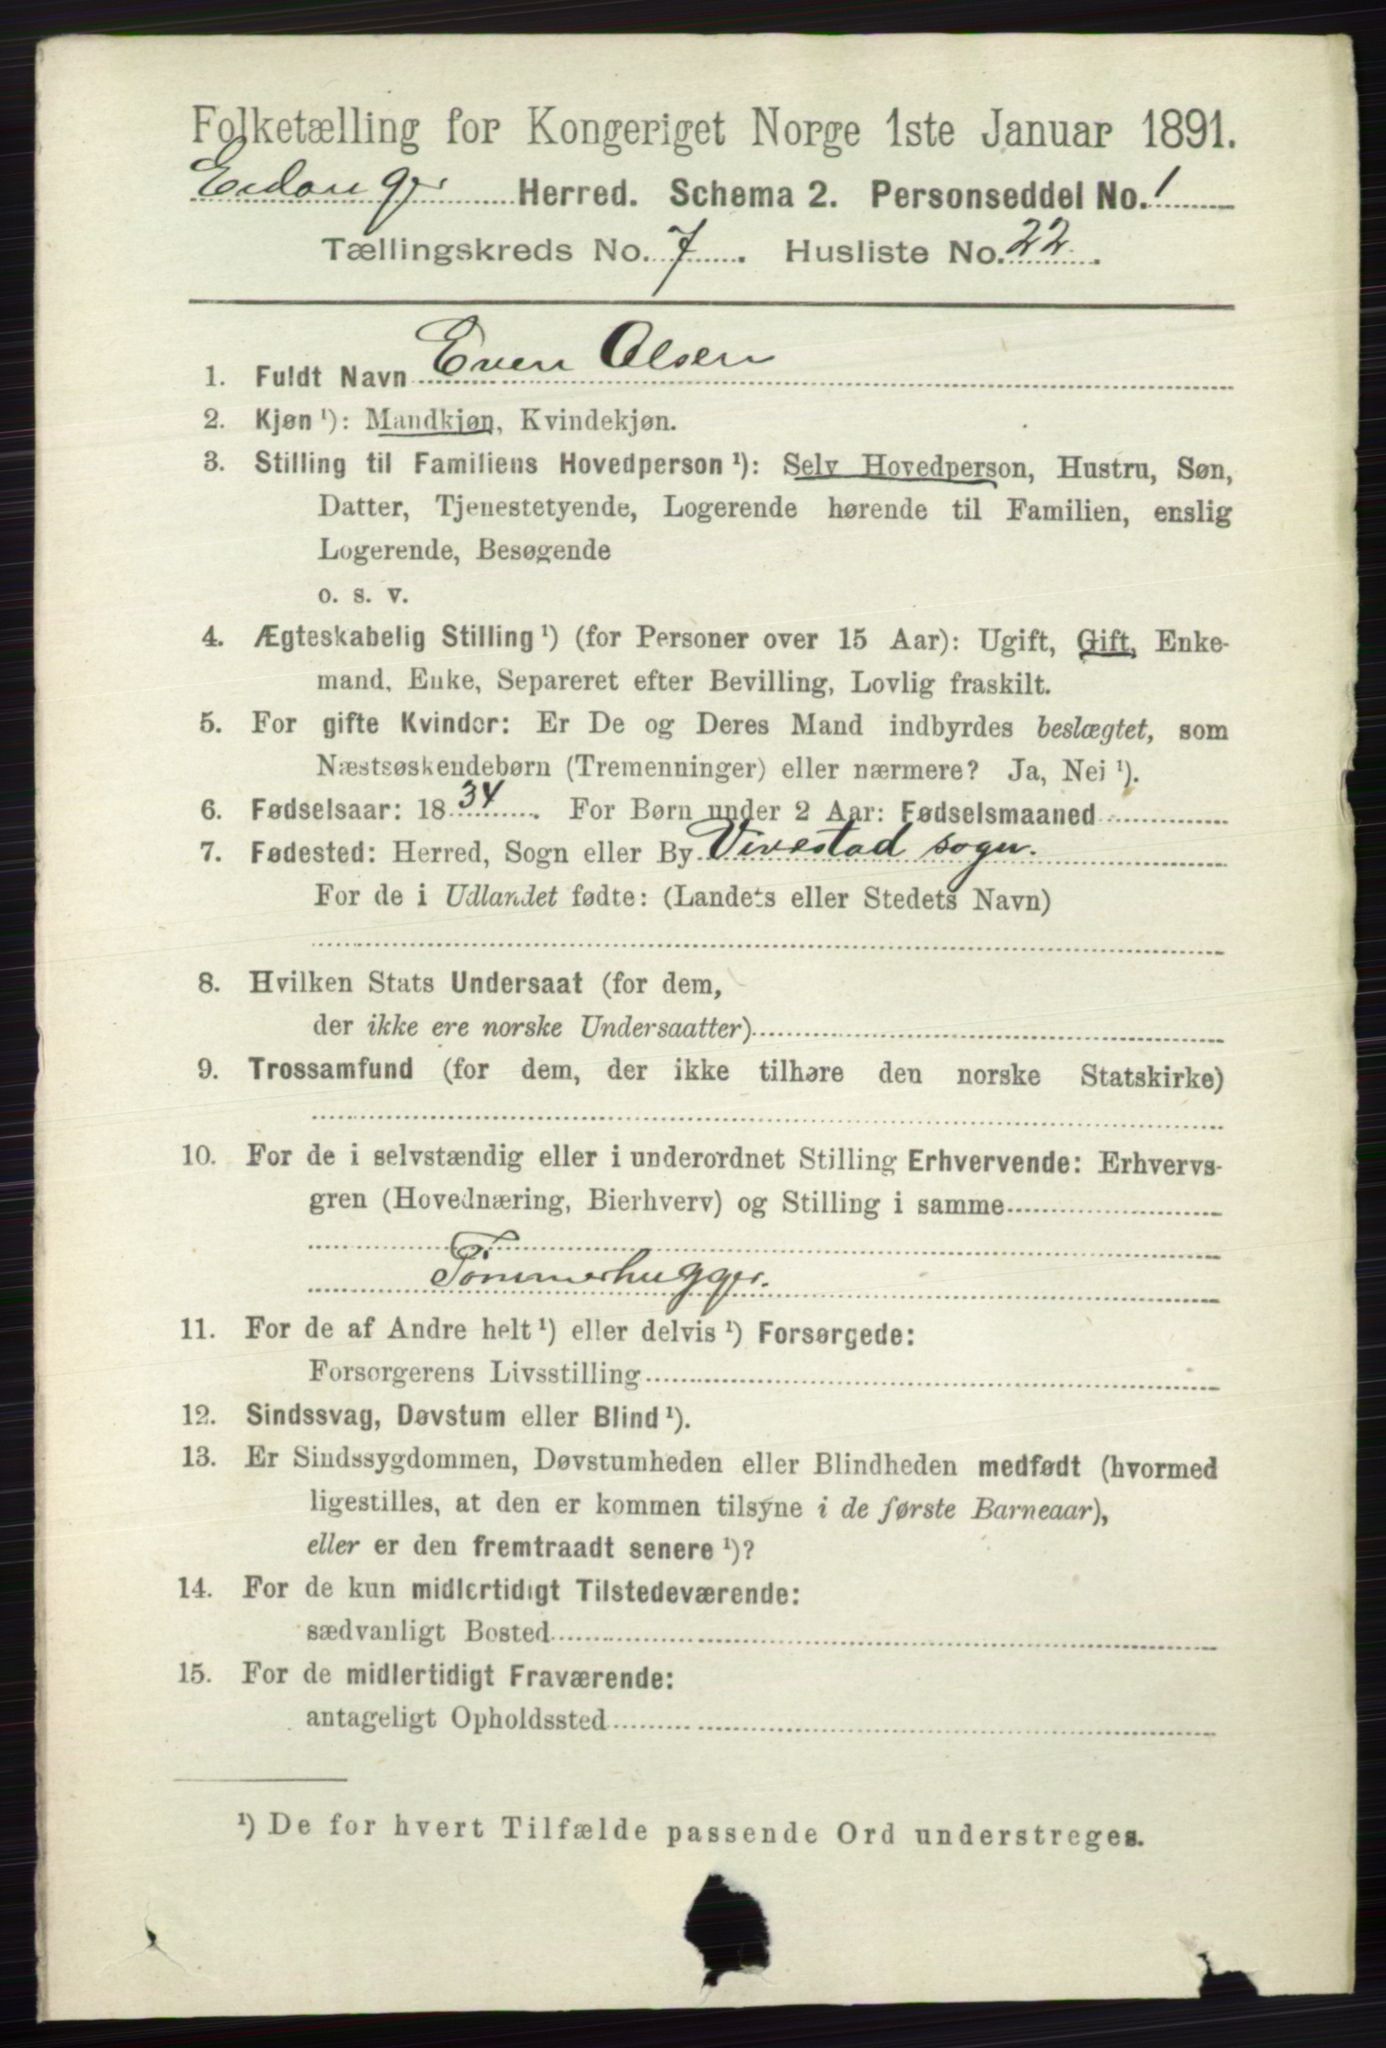 Folketælling for Kongeriget Norge 1ste Januar 1891.
Eidanger Herred. Schema 2. Personseddel No. 1
Tællingskreds No. 7. Husliste No. 22.
1. Fuldt Navn Even Olsen
2. Kjøn ¹): Mandkjøn, Kvindekjøn.
3. Stilling til Familiens Hovedperson ¹): Selv Hovedperson, Hustru, Søn,
Datter, Tjenestetyende, Logerende hørende til Familien, enslig
Logerende, Besøgende
o. s. v.
4. Ægteskabelig Stilling ¹) (for Personer over 15 Aar): Ugift, Gift, Enke-
mand, Enke, Separeret efter Bevilling, Lovlig fraskilt.
5. For gifte Kvinder: Er De og Deres Mand indbyrdes beslægtet, som
Næstsøskendebørn (Tremenninger) eller nærmere? Ja, Nei ¹).
6. Fødselsaar: 1834. For Børn under 2 Aar: Fødselsmaaned
7. Fødested: Herred, Sogn eller By Vivestad sogn.
For de i Udlandet fødte: (Landets eller Stedets Navn)
8. Hvilken Stats Undersaat (for dem,
der ikke ere norske Undersaatter)
9. Trossamfund (for dem, der ikke tilhøre den norske Statskirke)
10. For de i selvstændig eller i underordnet Stilling Erhvervende: Erhvervs-
gren (Hovednæring, Bierhverv) og Stilling i samme
Tömmerhugger.
11. For de af Andre helt ¹) eller delvis ¹) Forsørgede:
Forsørgerens Livsstilling
12. Sindssvag, Døvstum eller Blind ¹).
13. Er Sindssygdommen, Døvstumheden eller Blindheden medfødt (hvormed
ligestilles, at den er kommen tilsyne i de første Barneaar),
eller er den fremtraadt senere ¹)?
14. For de kun midlertidigt Tilstedeværende:
sædvanligt Bosted
15. For de midlertidigt Fraværende:
antageligt Opholdssted
¹) De for hvert Tilfælde passende Ord understreges.